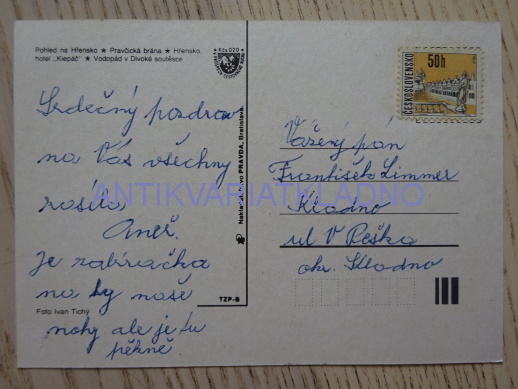 Pohled na Hřensko ★ Pravčická brána ★ Hřensko,
hotel „Klepáč" ★ Vodopád v Divoké soutěsce
Kčs 0,20
Srdečný pozdrav
na Vás všechny
posílá
Anež.
Je zabíračka
na ty naše
nohy ale je tu
pěkně.
Foto Ivan Tichý
Nakladatelstvo PRAVDA, Bratislava
TZP-B
50h
ČESKOSLOVENSKO
Vážený pán
František Limmer
Kladno
ul V Peška
okr. Kladno
ANTIKVARIATKLADNO